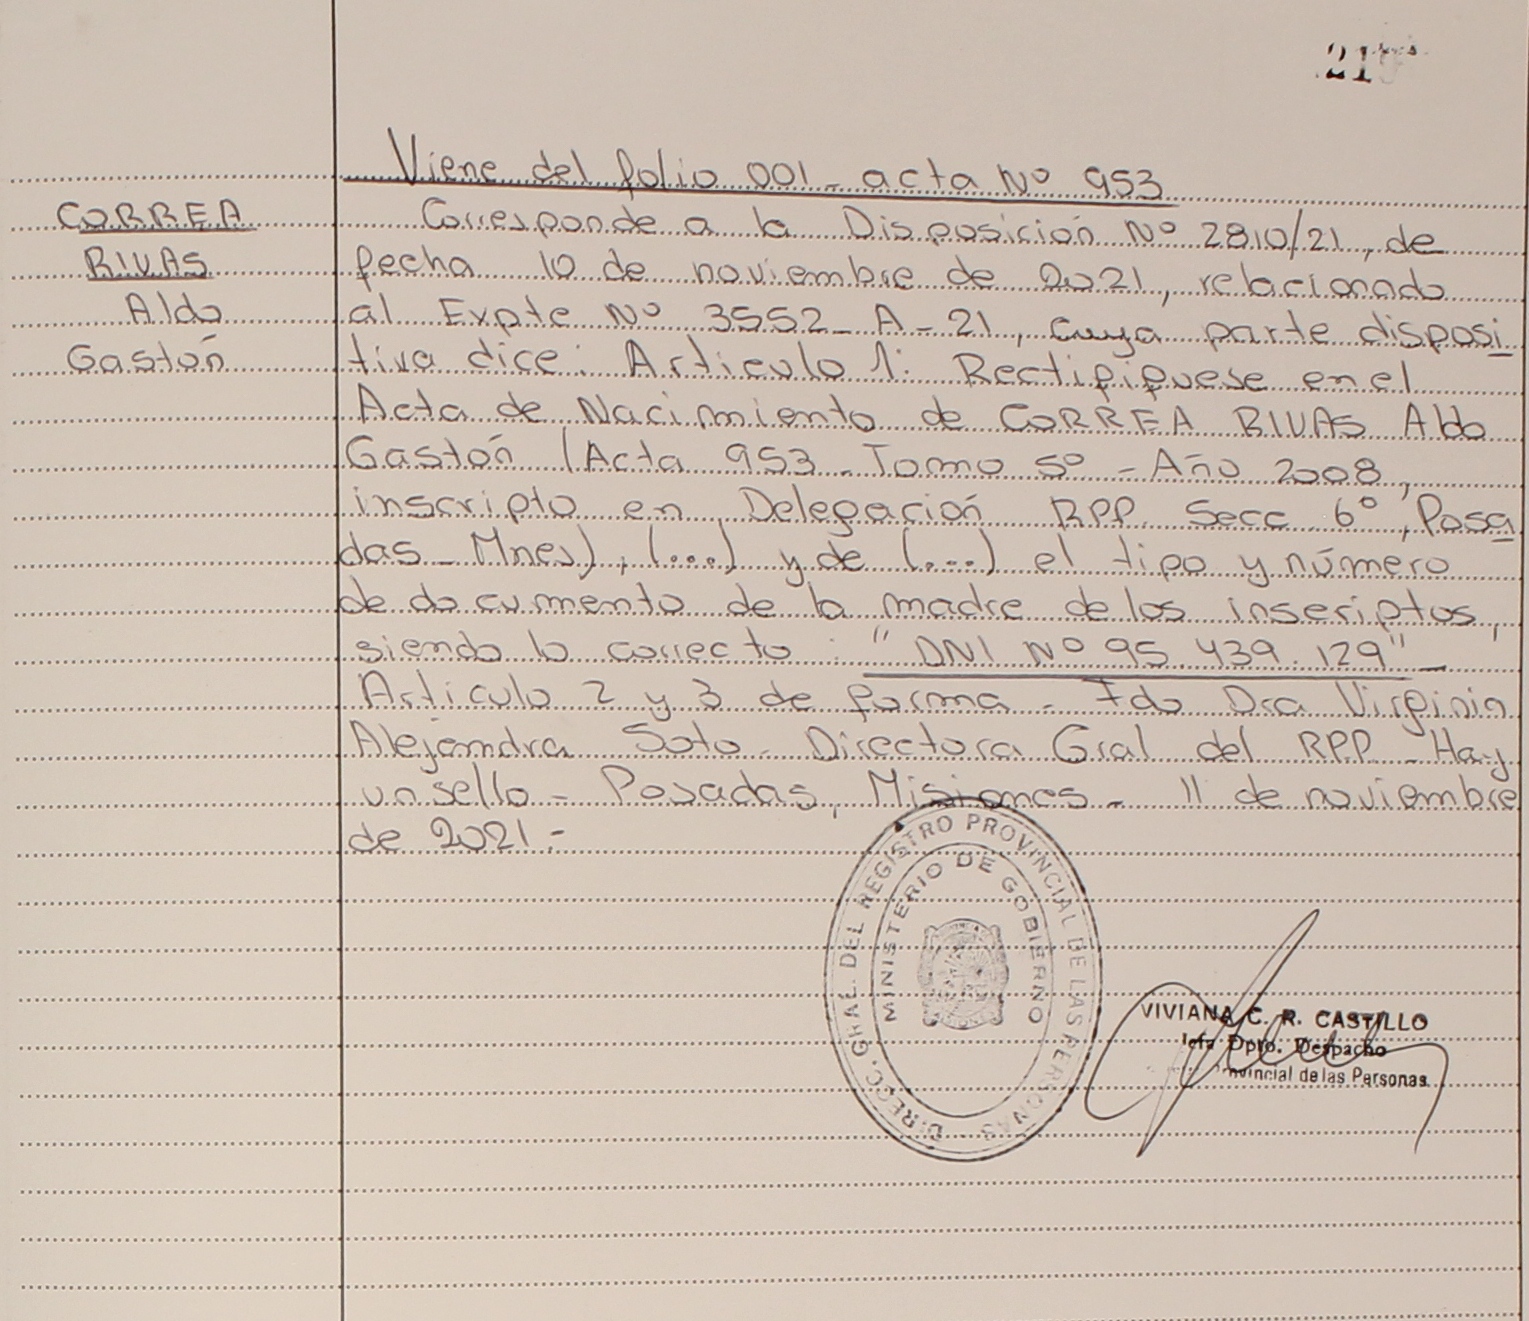 21
Viene del folio 001 - acta Nº 953
CORREA
RIVAS
Aldo
Gastón
Corresponde a la Disposición Nº 2810/21, de
fecha 10 de noviembre de 2021, relacionado
al Expte Nº 3552 - A - 21, cuya parte disposi
tiva dice: Articulo 1: Rectifiquese en el
Acta de Nacimiento de CORREA RIVAS Aldo
Gastón (Acta 953 - Tomo 5º - Año 2008,
inscripto en Delegación RPP. Secc 6º, Posa
das - Mnes), (...) y de (...) el tipo y número
de documento de la madre de los inscriptos,
siendo lo correcto: "DNI Nº 95.439.129" -
Articulo 2 y 3 de forma - Fdo Dra Virginia
Alejandra Soto - Directora Gral del RPP - Hay
un sello - Posadas, Misiones - 11 de noviembre
de 2021.-
DIRECC. GRAL. DEL REGISTRO PROVINCIAL DE LAS PERSONAS
MINISTERIO DE GOBIERNO
VIVIANA C. R. CASTILLO
Jefa Dpto. Despacho
Provincial de las Personas